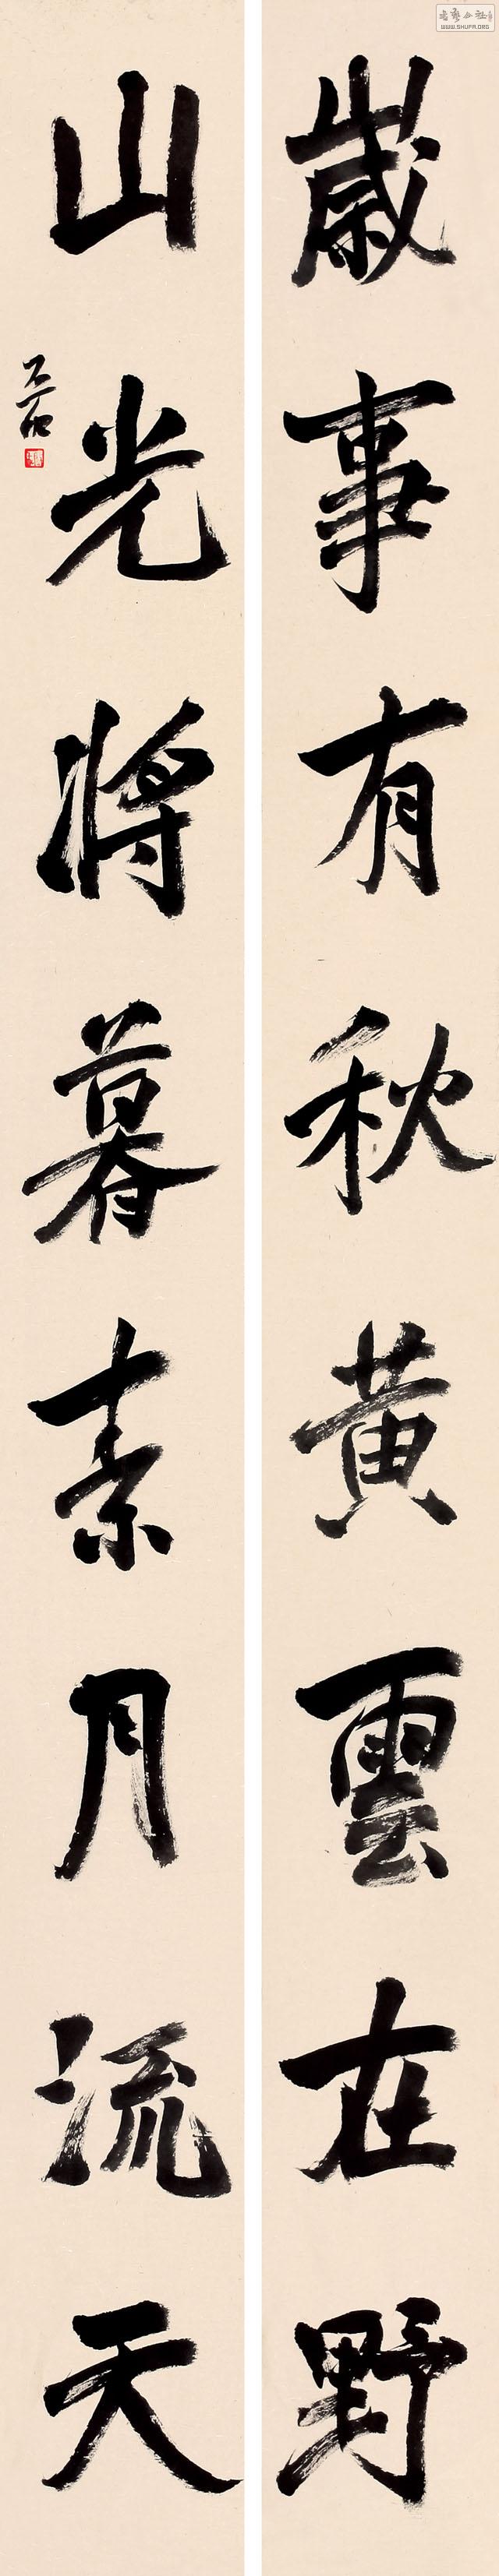 歲事有秋黃雲在野
山光將暮素月流天
WWW.SHUFA.ORG